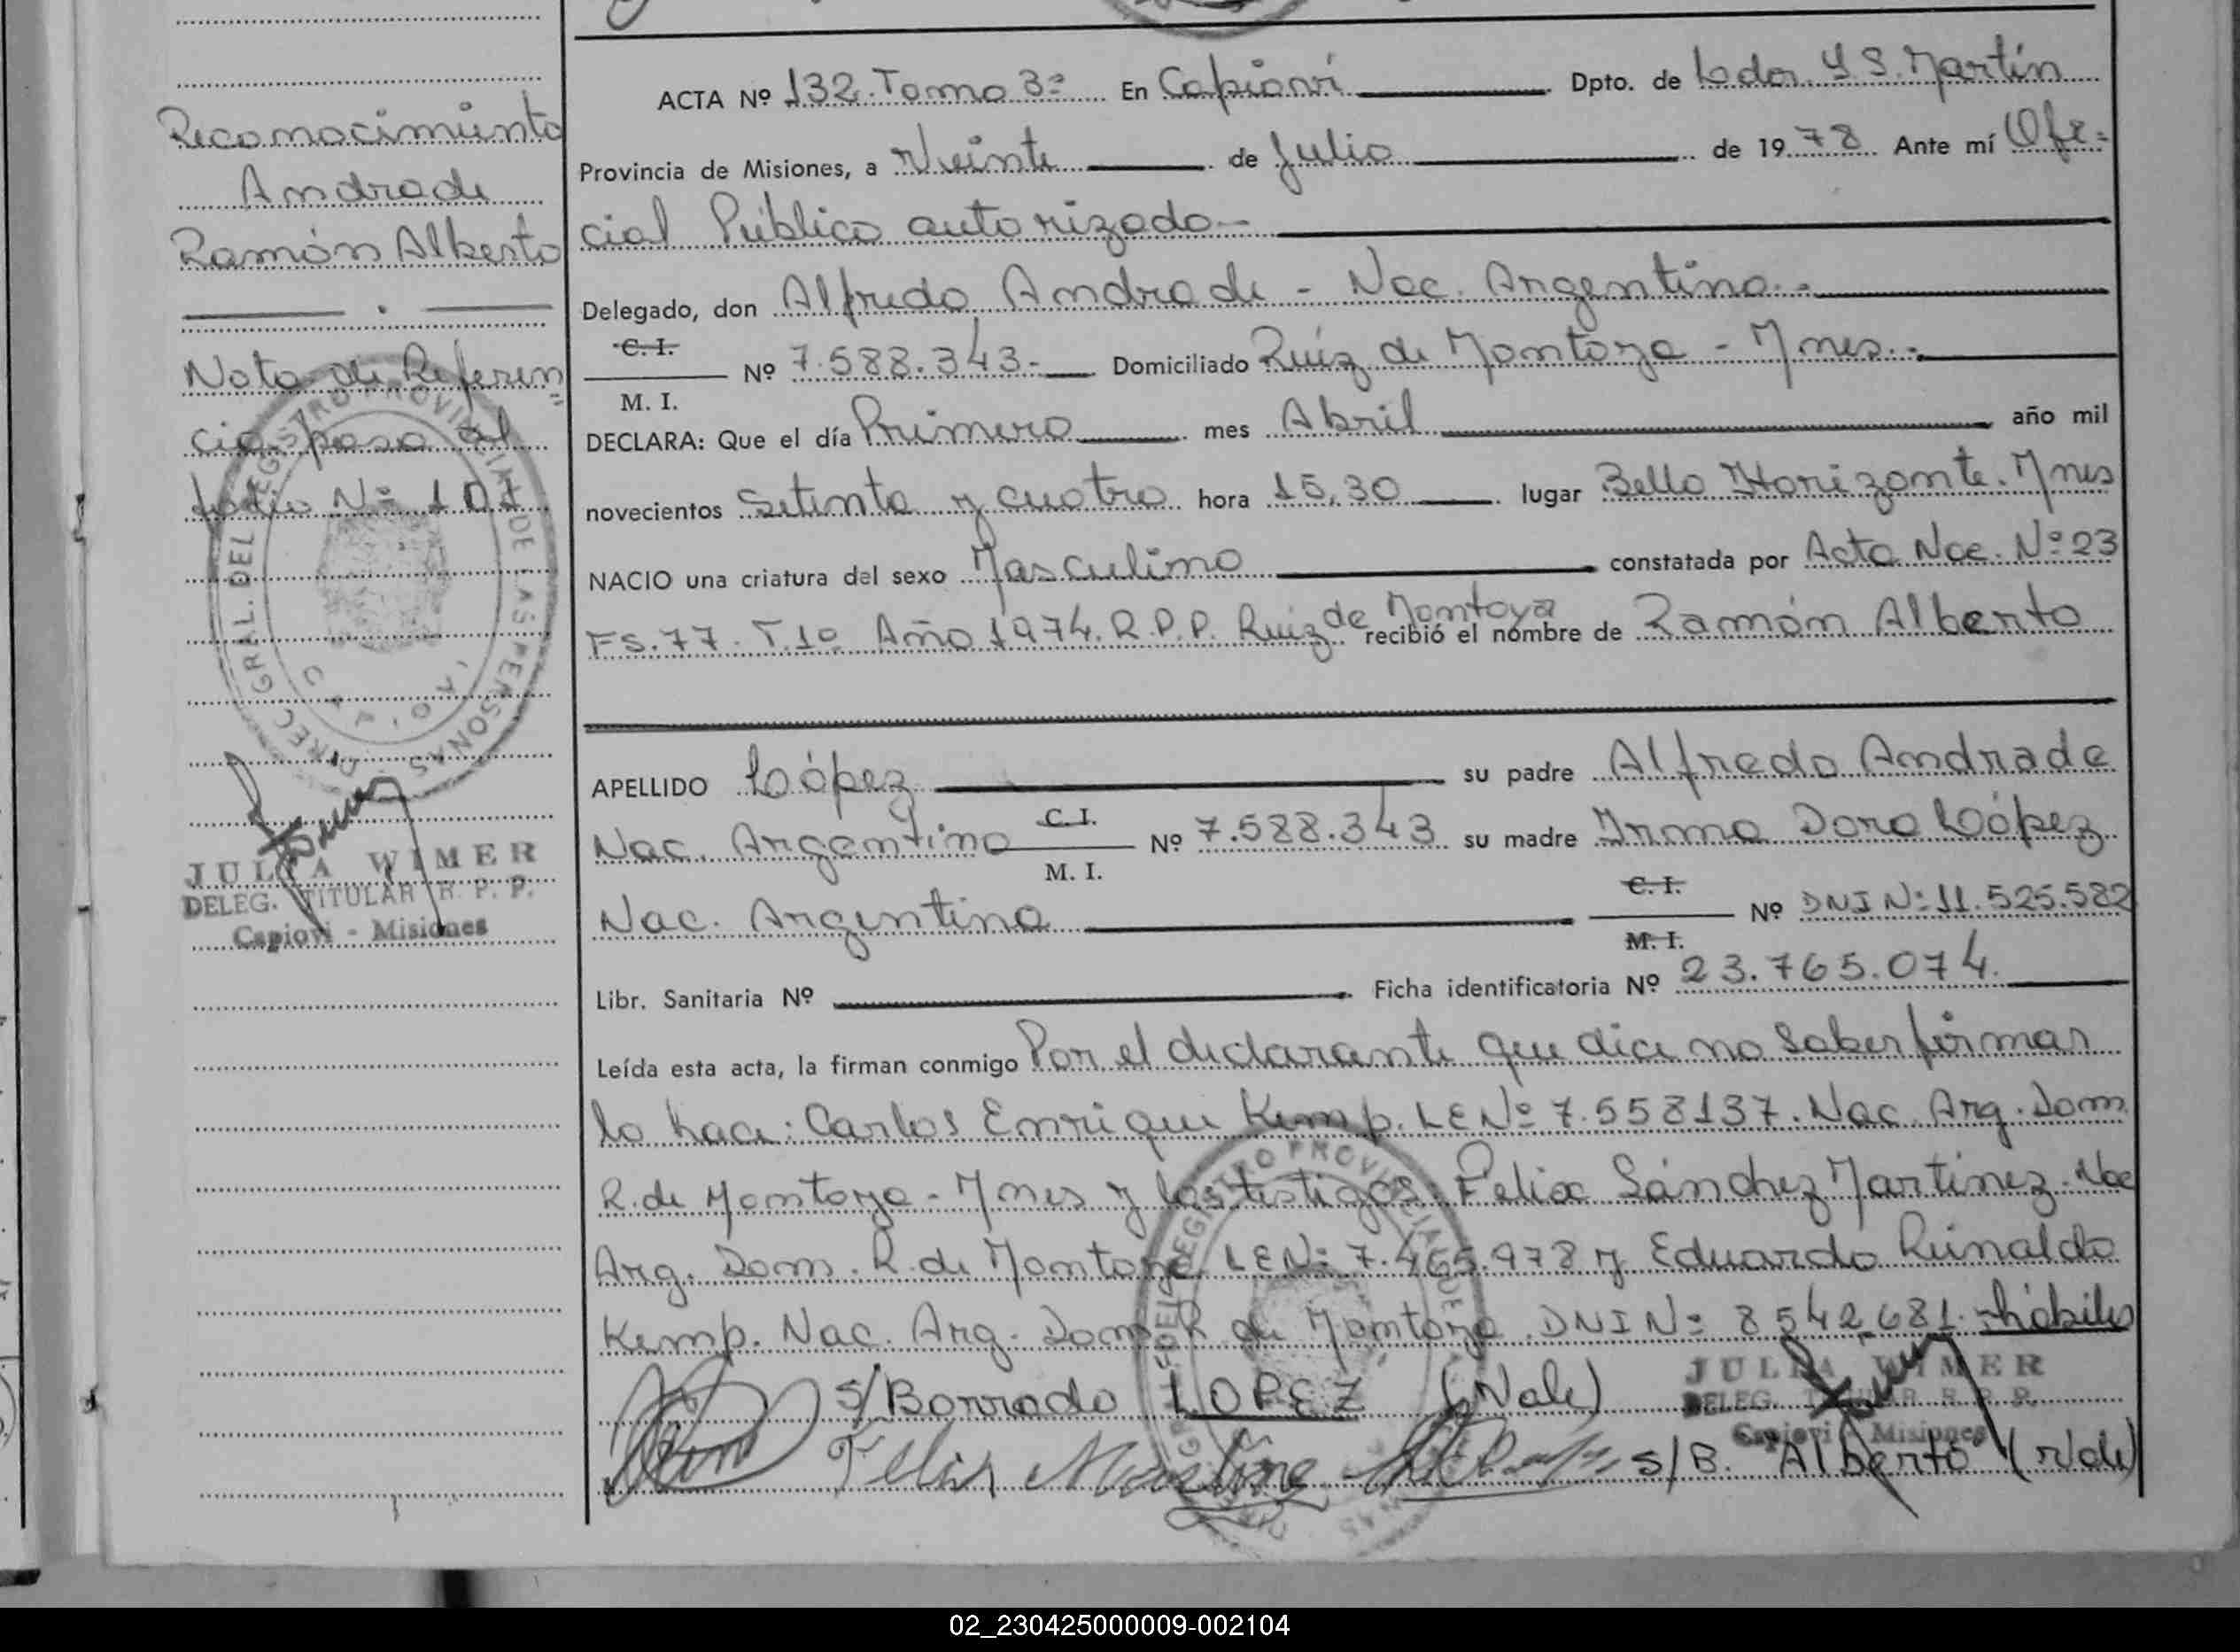 Reconocimiento
Andrade
Ramón Alberto
Nota de Referen=
cia paso al
folio Nº 101
JULIA WIMER
DELEG. TITULAR R. P. P.
Capiovi - Misiones
ACTA Nº 132. Tomo 3º En Capioví Dpto. de Ldor. G. S. Martín
Provincia de Misiones, a Veinte de Julio de 1978 Ante mí Ofi=
cial Público autorizado.-
Delegado, don Alfredo Andrade - Nac. Argentina.-
C. I.
Nº 7.588.343.- Domiciliado Ruíz de Montoya - Mnes.-
M. I.
DECLARA: Que el día Primero mes Abril año mil
novecientos Setenta y cuatro hora 15,30 lugar Bello Horizonte. Mnes
NACIO una criatura del sexo Masculino constatada por Acta Nac. Nº 23
FS. 77. T. 1º Año 1974. R.P.P. Ruiz de Montoya recibió el nombre de Ramón Alberto
APELLIDO López su padre Alfredo Andrade
Nac. Argentino C. I. M. I. Nº 7.588.343 su madre Irma Dora López
Nac. Argentina C. I. M. I. Nº DNI Nº 11.525.582
Libr. Sanitaria Nº Ficha identificatoria Nº 23.765.074.
Leída esta acta, la firman conmigo Por el declarante que dice no saber firmar
lo hace: Carlos Enrique Kemp. LE Nº 7.558137. Nac. Arg. Dom.
R. de Montoya - Mnes y los testigos: Felix Sánchez Martínez. Nac
Arg. Dom. R. de Montoya. LE Nº 7.465.978 y Eduardo Reinaldo
Kemp. Nac. Arg. Dom. R de Montoya. DNI Nº 8542.681. hábiles
S/Borrado LOPEZ (Vale)
JULIA WIMER
DELEG. TITULAR R. P. P.
Capiovi - Misiones
Felix Martine S/B. "Alberto" (Vale)
02_230425000009-002104